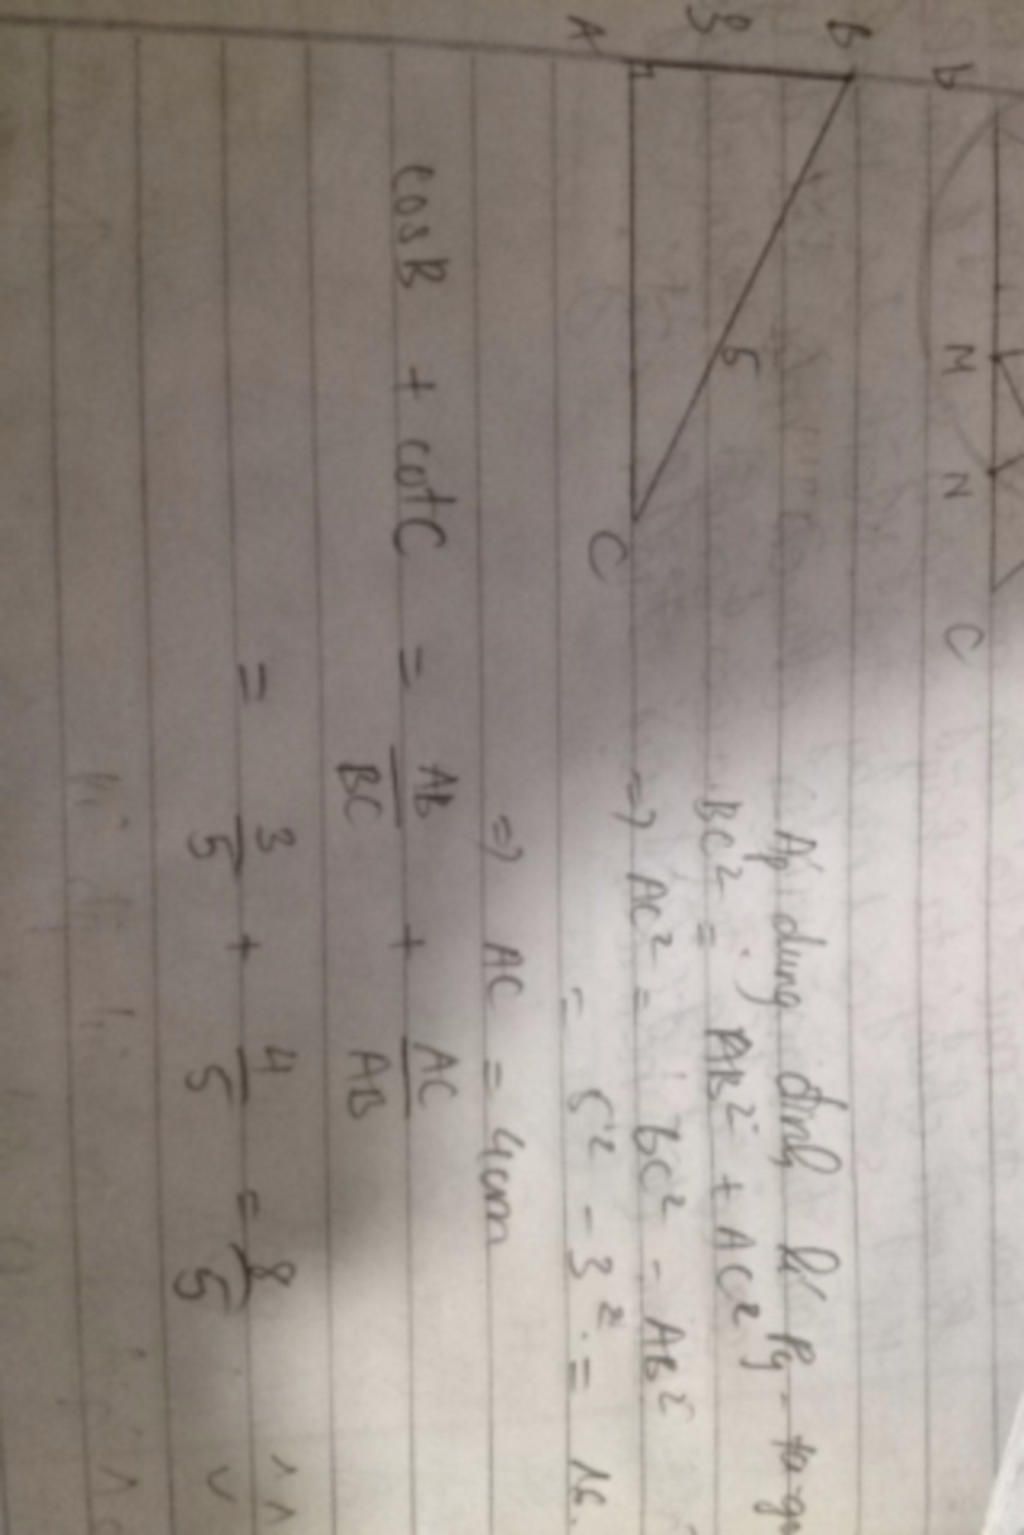 B
M
N
C
B
3
5
A
C
Áp dụng định lí Py-tago
BC² = AB² + AC²
=> AC² = BC² - AB²
= 5² - 3² = 16.
=> AC = 4cm
cosB + cotC = AB/BC + AC/AB
= 3/5 + 4/5 = 8/5